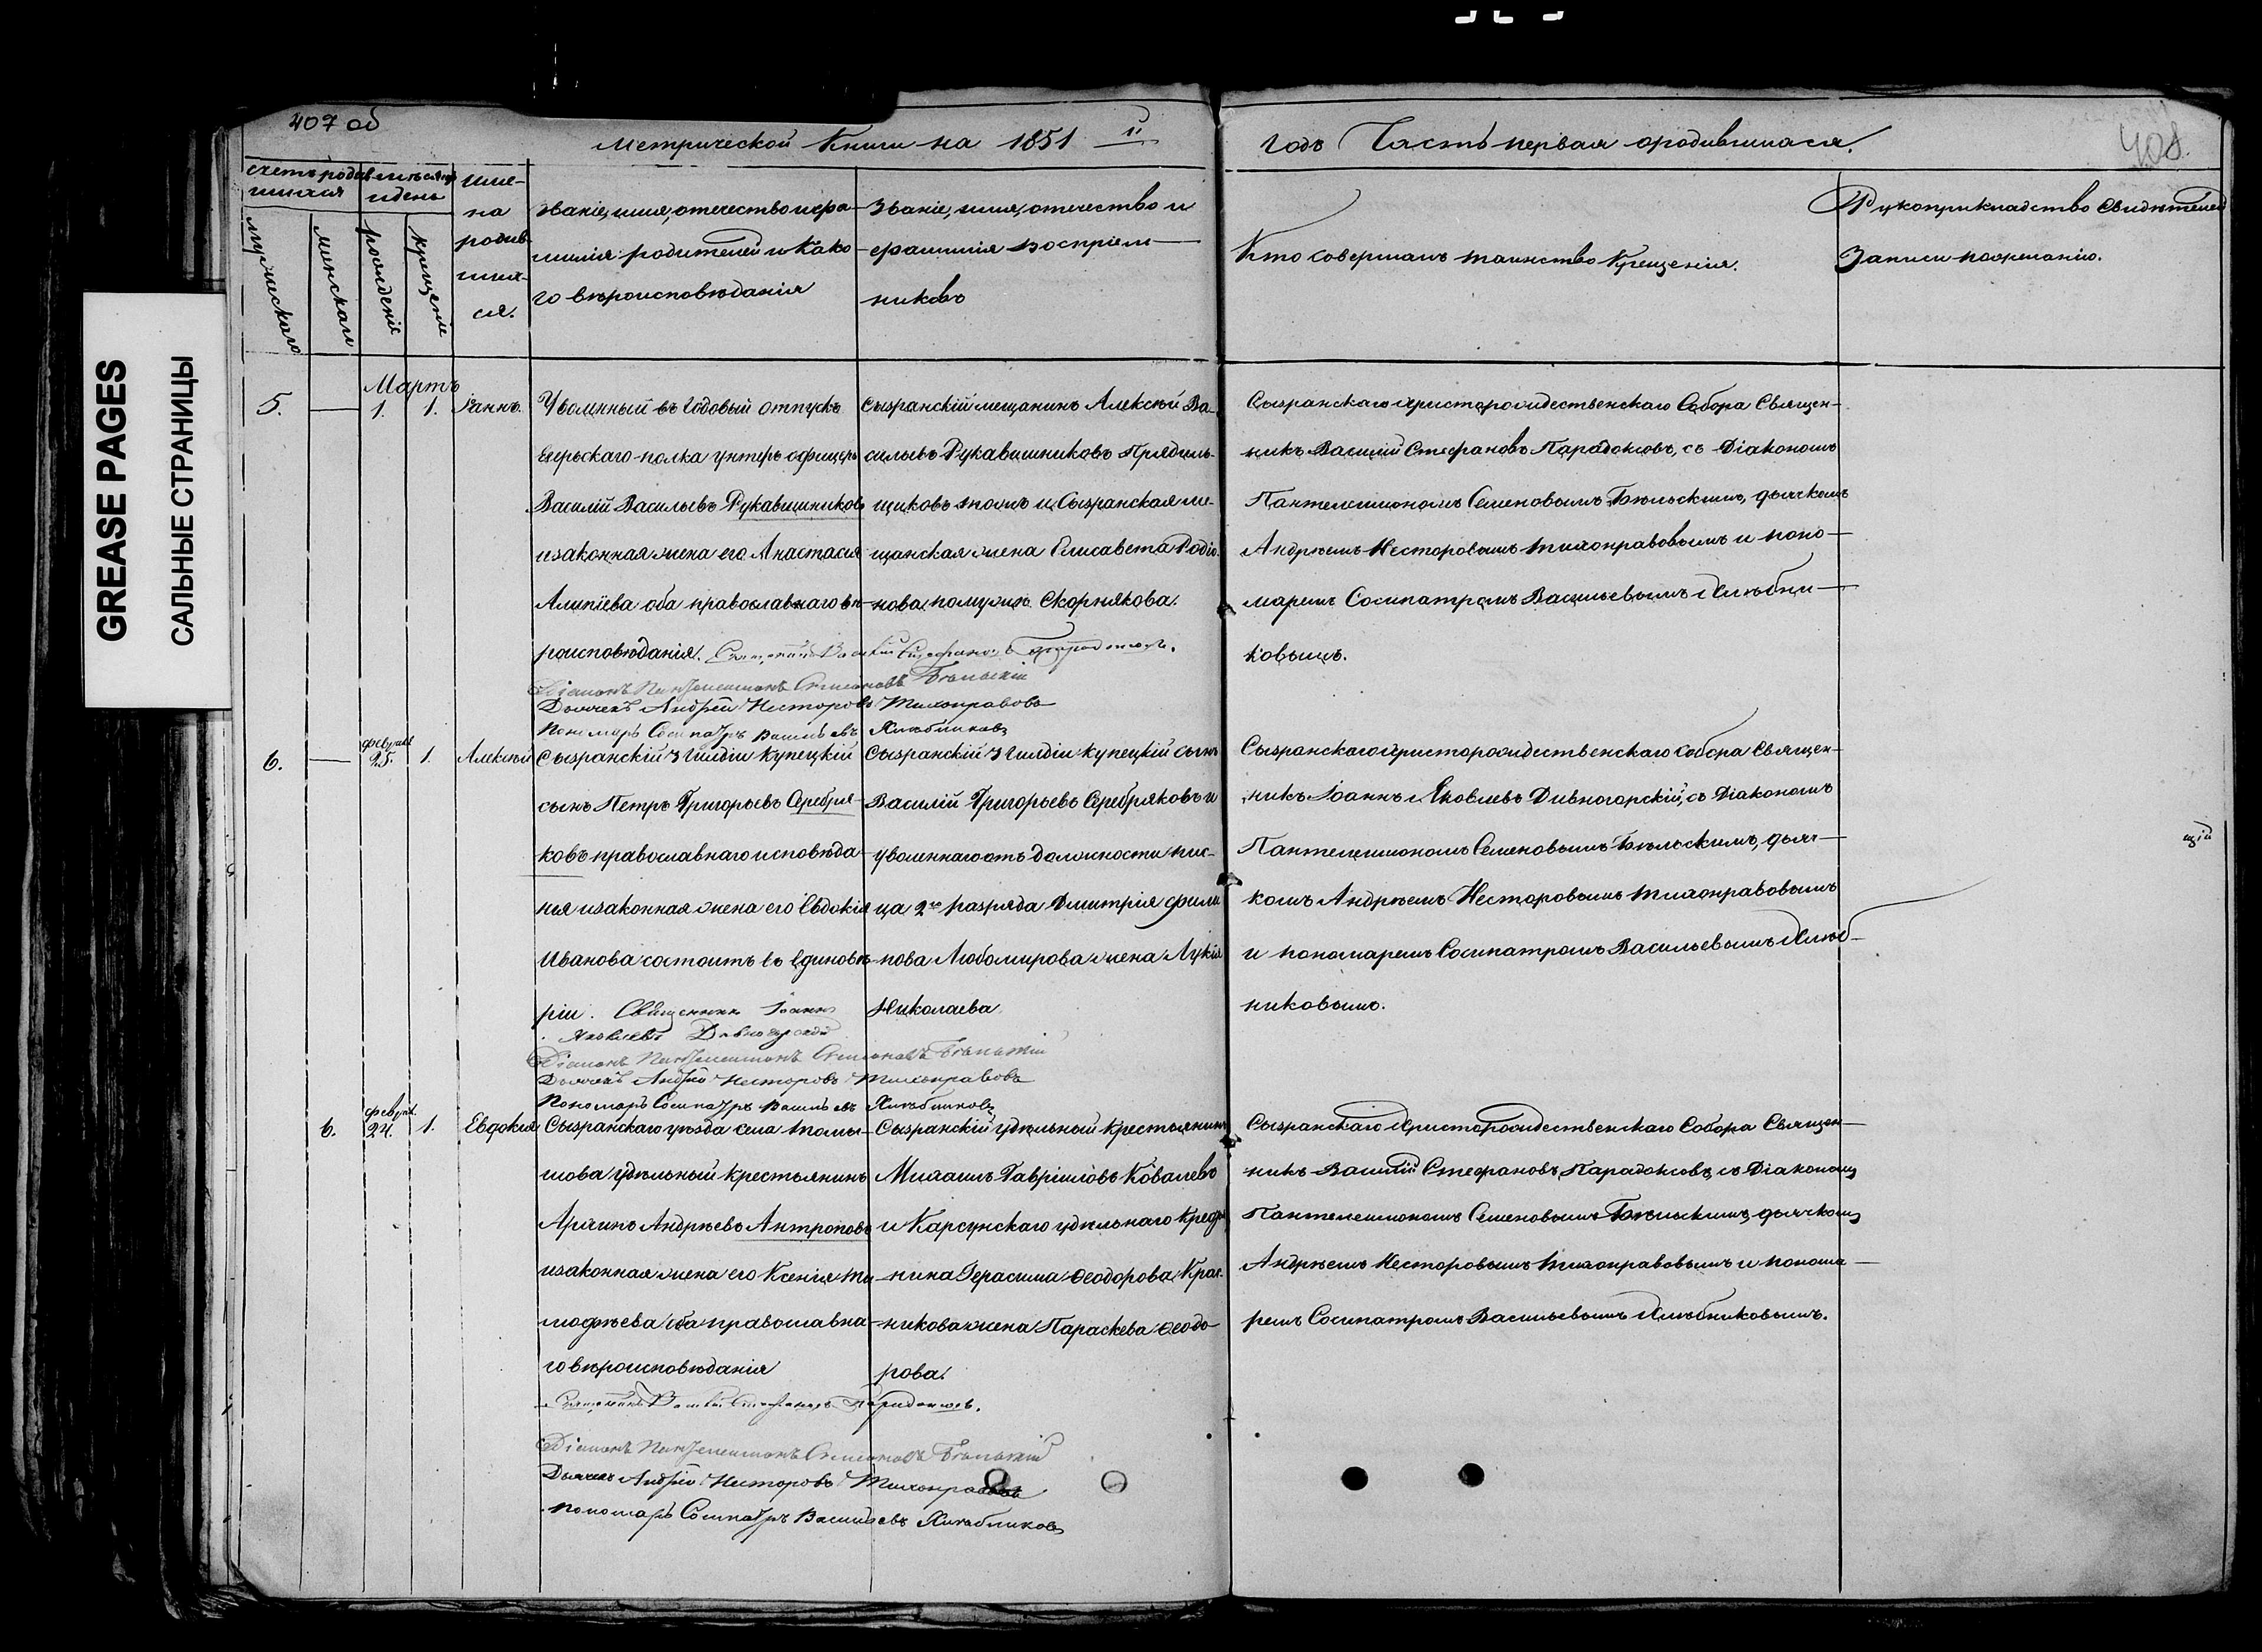 407 об
Метрической Книги на 1851 й
годъ Часть первая о родившихся.
408.
GREASE PAGES
САЛЬНЫЕ СТРАНИЦЫ
счетъ родив-
шихся
мужескаго
женскаго
мѣсяцъ
и день
рожденія
крещенія
име-
на
родив-
ших-
ся.
Званіе, имя, отечество и фа-
милія родителей и како-
го вѣроисповѣданія
Званіе, имя, отечество и
фамилія воспріем-
никовъ
Кто совершалъ таинство Крещенія.
Рукоприкладство Свидѣтелей
Записи по желанію.
Мартъ
5. — 1. 1. Іаннъ.
Уволенный въ годовый отпускъ
Егерьскаго полка унтеръ офицеръ
Василій Васильевъ Рукавишниковъ
и законная жена его Анастасія
Алипіева оба православнаго вѣ-
роисповѣданія. Священникъ Василій Стефановъ Парадоксовъ.
Діаконъ Пантелеимонъ Семеновъ Бѣльскій
Дьячекъ Андрей Несторовъ Тихонравовъ
Пономарь Сосипатръ Васильевъ Хлѣбниковъ
Сызранскій мещанинъ Алексѣй Ва-
сильевъ Рукавишниковъ Прядиль-
щиковъ тожъ и Сызранская ме-
щанская жена Елисавета Родіо-
нова по мужѣ Скорнякова.
Сызранскаго Христорождественскаго Собора Священ-
никъ Василій Стефановъ Парадоксовъ, съ Діакономъ
Пантелеимономъ Семеновымъ Бѣльскимъ, дьячкомъ
Андреемъ Несторовымъ Тихонравовымъ и поно-
маремъ Сосипатромъ Васильевымъ Хлѣбни-
ковымъ.
февраля
6. — 25. 1. Алексѣй
Сызранскій 3 гильдіи купецкій
сынъ Петръ Григорьевъ Серебря-
ковъ православнаго исповѣда-
нія и законная жена его Евдокія
Иванова состоитъ въ единовѣ-
ріи. Священникъ Іоаннъ
Яковлевъ Дивногорскій
Діаконъ Пантелеимонъ Семеновъ Бѣльскій
Дьячекъ Андрей Несторовъ Тихонравовъ
Пономарь Сосипатръ Васильевъ Хлѣбниковъ
Сызранскій 3 гильдіи купецкій сынъ
Василій Григорьевъ Серебряковъ и
уволеннаго отъ должности пис-
ца 2го разряда Дмитрія Фили-
пова Любомирова жена Лукія
Николаева
Сызранскаго Христорождественскаго Собора Священ-
никъ Іоаннъ Яковлевъ Дивногорскій, съ Діакономъ
Пантелеимономъ Семеновымъ Бѣльскимъ, дьяч-
комъ Андреемъ Несторовымъ Тихонравовымъ
и пономаремъ Сосипатромъ Васильевымъ Хлѣб-
никовымъ.
щій
февраля
6. 24. 1. Евдокія
Сызранскаго уѣзда села Томы-
шова удѣльный крестьянинъ
Андрѣевъ Антроповъ
и законная жена его Ксенія Ти-
мофѣева оба православна-
го вѣроисповѣданія
Священникъ Василій Стефановъ Парадоксовъ.
Діаконъ Пантелеимонъ Семеновъ Бѣльскій
Дьячекъ Андрей Несторовъ Тихонравовъ
Пономарь Сосипатръ Васильевъ Хлѣбниковъ
Сызранскій удѣльный крестьянинъ
Михаилъ Гавріиловъ Ковалевъ
и Карсунскаго удѣльнаго
нина Герасима Ѳеодорова
никова жена Параскева Ѳеодо-
рова.
Сызранскаго Христорождественскаго Собора Священ-
никъ Василій Стефановъ Парадоксовъ, съ Діакономъ
Пантелеимономъ Семеновымъ Бѣльскимъ, дьячкомъ
Андреемъ Несторовымъ Тихонравовымъ и понома-
ремъ Сосипатромъ Васильевымъ Хлѣбниковымъ.